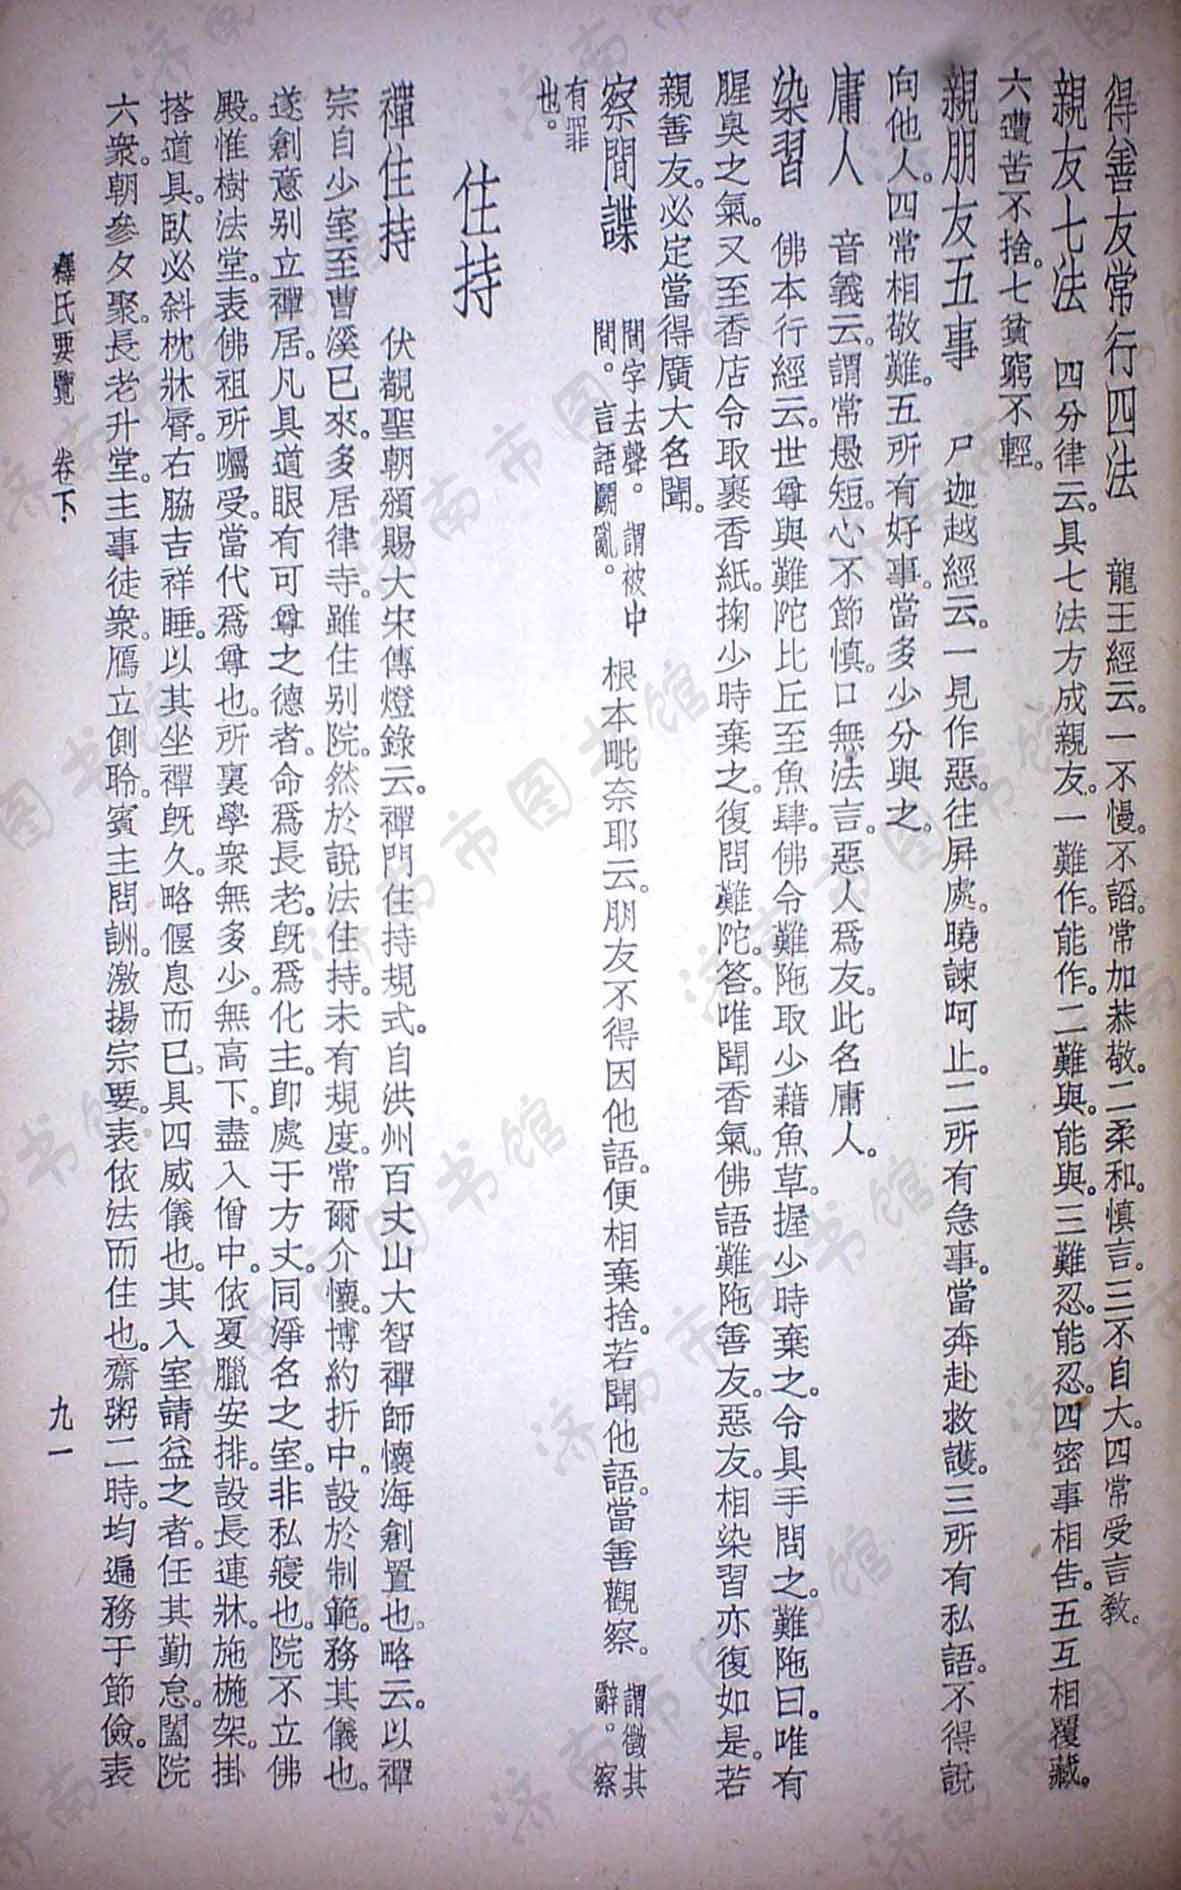 得善友常行四法　龍王經云。一不慢。不諂。常加恭敬。二柔和。慎言。三不自大。四常受言教。
親友七法　四分律云。具七法方成親友。一難作。能作。二難與。能與。三難忍。能忍。四密事相告。五互相覆藏。
六遭苦不捨。七貧窮不輕。
親朋友五事　尸迦越經云。一見作惡。往屛處。曉諫呵止。二所有急事。當奔赴救護。三所有私語。不得說
向他人。四常相敬難。五所有好事。當多少分與之。
庸人　音義云。謂常愚短。心不節慎。口無法言。惡人爲友。此名庸人。
染習　佛本行經云。世尊與難陀比丘至魚肆。佛令難陁取少藉魚草。握少時棄之。令具手問之。難陁曰。唯有
腥臭之氣。又至香店令取裹香紙。掬少時棄之。復問難陀。答。唯聞香氣。佛語難陁。善友。惡友。相染習亦復如是。若
親善友。必定當得廣大名聞。
察間諜　間字去聲。謂被中間。言語鬭亂。　根本毗奈耶云。朋友不得因他語。便相棄捨。若聞他語。當善觀察。謂徵其辭。察
有罪也。
住持
禪住持　伏覩聖朝頒賜大宋傳燈錄云。禪門住持規式。自洪州百丈山大智禪師懷海創置也。略云。以禪
宗自少室至曹溪已來。多居律寺。雖住别院。然於說法住持。未有規度。常爾介懷。博約折中。設於制範。務其儀也。
遂創意别立禪居。凡具道眼有可尊之德者。命爲長老。旣爲化主。卽處于方丈。同淨名之室。非私寢也。院不立佛
殿。惟樹法堂。表佛祖所囑受。當代爲尊也。所裏學衆無多少。無高下。盡入僧中。依夏臘安排。設長連牀。施椸架。掛
搭道具。臥必斜枕牀脣。右脇吉祥睡。以其坐禪旣久。略偃息而已。具四威儀也。其入室請益之者。任其勤怠。闔院
六衆。朝參夕聚。長老升堂。主事徒衆。鴈立側聆。賓主問詶。激揚宗要。表依法而住也。齋粥二時。均遍務于節儉。表
釋氏要覽　卷下　九一